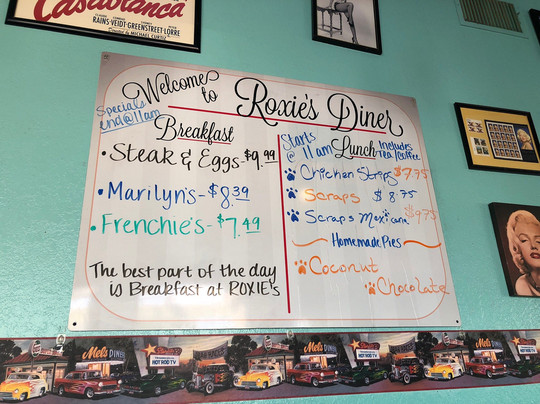 Casablanca
RAINS·VEIDT·GREENSTREET·LORRE
Directed by MICHAEL CURTIZ
Welcome
to
Roxie's Diner
Specials
end @ 11am
Breakfast
• Steak & Eggs - $9.99
• Marilyn's - $8.39
• Frenchie's - $7.49
The best part of the day
is Breakfast at ROXIE's
Starts
@ 11am
Lunch
Includes
Tea/Coffee
Chicken Strips $7.75
Scraps $8.75
Scraps Mexicana $9.75
Homemade Pies
Coconut
Chocolate
Mel's DINER
HOT ROD TV
Mel's DINER
HOT ROD TV
Mel's DINER
HOT ROD TV